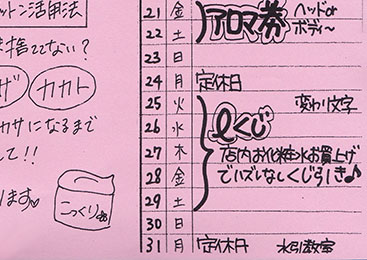 ットン活用法
捨ててない?
ザ カカト
カサになるまで
して!!
ります♡
こっくり
21 金 アロマ券 ヘッドor
22 土 ボディ〜
23 日
24 月 定休日
25 火 変わり文字
26 水 くじ
27 木 店内お化粧水お買上げ
28 金 でハズレなしくじ引き♪
29 土
30 日
31 月 定休日 水引教室